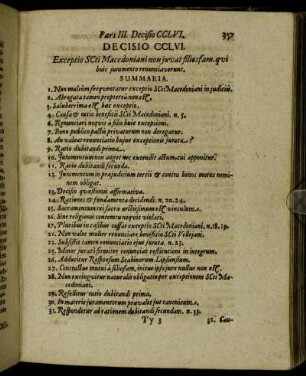 Pars III. Decisio CCLVI. 357
DECISIO CCLVI.
Exceptio SCti Macedoniani non juvat filiosfam. qvi
huic juramento renunciaverunt.
SUMMARIA.
1. Num multùm freqventatur exceptio SCti Macedoniani in judiciis.
2. Abrogata tamen propterea non est.
3. Saluberrima est hæc exceptio.
4. Causa & ratio beneficii SCti Macedoniani. n. 5.
6. Renunciari neqvit à filio huic exceptioni.
7. Bono publico pactis privatorum non derogatur.
8. An valeat renunciatio hujus exceptionis jurata?
9. Ratio dubitandi prima.
10. Juramentum non auget nec extendit actum cui apponitur.
11. Ratio dubitandi secunda.
12. Juramentum in præjudicium tertii & contra bonos mores neminem
obligat.
13. Decisio qvæstionis affirmativa.
14. Rationes & fundamenta decidendi. n. 20. 24.
15. Sacramentum res sacra arctissimum est vinculum.
16. Sine religionis contemtu neqvit violari.
17. Pluribus in casibus cessat exceptio SCti Macedoniani. n. 18. 19.
21. Non valet mulier renunciare beneficio SCti Vellejani.
22. Subsistit tamen renunciatio ejus jurata. n. 23.
25. Minor jurati firmiter renunciat restitutioni in integrum.
26. Adducitur Responsum Scabinorum Lipsensium.
27. Contractus mutui à filiofam. initus ipso jure nullus non est.
28. Nam extingvitur naturalis obligatio per exceptionem SCti Macedoniani.
29. Refellitur ratio dubitandi prima.
30. In materia juramentorum prævalet jus canonicum.
31. Respondetur ad rationem dubitandi secundam. n. 33.
Yy 3 32. Cau-